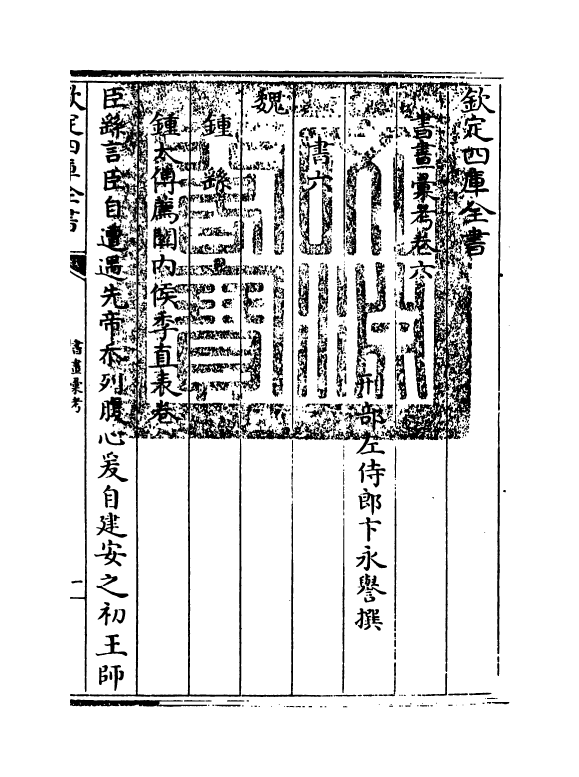 欽定四庫全書
書畫彙考卷六
刑部左侍郎卞永譽撰
書六
魏
鍾繇
鍾太傅薦關内侯季直表卷
臣繇言臣自遭遇先帝忝列腹心爰自建安之初王師
欽定四庫全書
書畫彙考